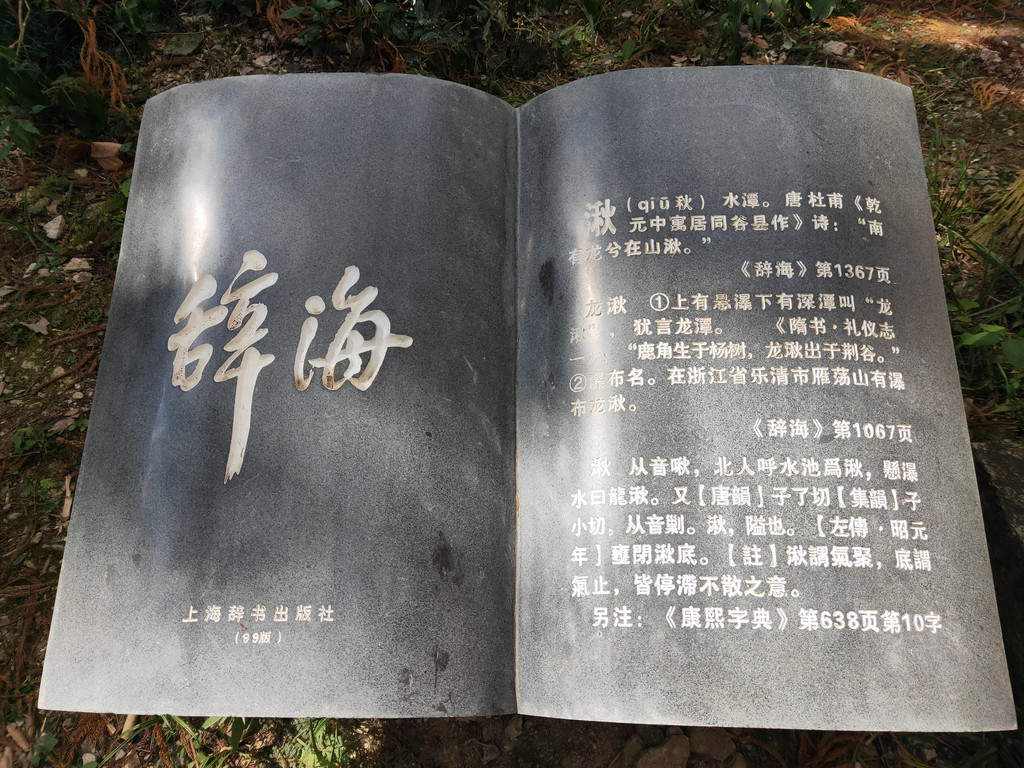 辞海
上海辞书出版社
(99版)
湫 (qiū秋) 水潭。唐杜甫《乾
元中寓居同谷县作》诗：“南
有龙兮在山湫。”
《辞海》第1367页
龙湫 ①上有悬瀑下有深潭叫“龙
湫”，犹言龙潭。 《隋书·礼仪志
一》：“鹿角生于杨树，龙湫出于荆谷。”
②瀑布名。在浙江省乐清市雁荡山有瀑
布龙湫。
《辞海》第1067页
湫 从音啾，北人呼水池爲湫，懸瀑
水曰龍湫。又【唐韻】子了切【集韻】子
小切，从音剿。湫，隘也。【左傳·昭元
年】壅閉湫底。【註】湫謂氣聚，底謂
氣止，皆停滯不散之意。
另注：《康熙字典》第638页第10字